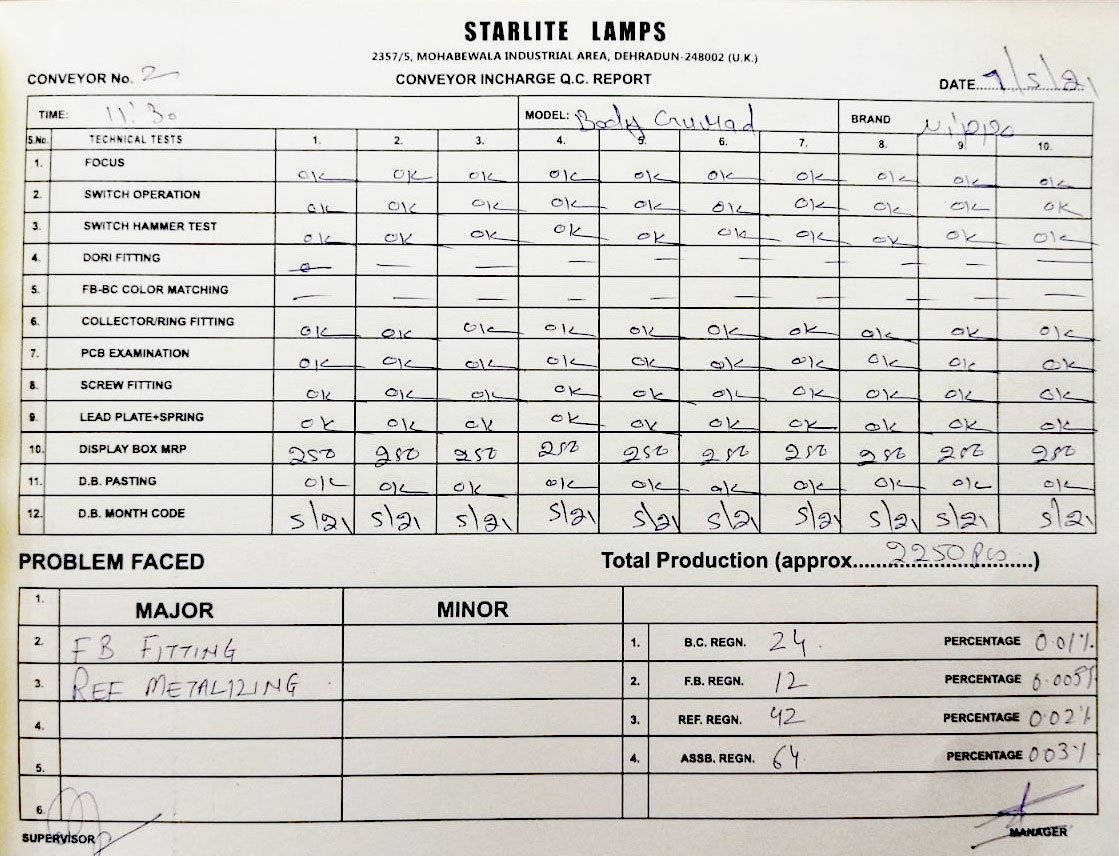 STARLITE LAMPS
2357/5, MOHABEWALA INDUSTRIAL AREA, DEHRADUN-248002 (U.K.)
CONVEYOR No. 2 CONVEYOR INCHARGE Q.C. REPORT DATE....../5/21
TIME: 11:30 MODEL: Body BRAND Nippo
S.No. TECHNICAL TESTS 1. 2. 3. 4. 5. 6. 7. 8. 9. 10.
1. FOCUS OK OK OK OK OK OK OK OK OK OK
2. SWITCH OPERATION OK OK OK OK OK OK OK OK OK OK
3. SWITCH HAMMER TEST OK OK OK OK OK OK OK OK OK OK
4. DORI FITTING — — — — — — — — — —
5. FB-BC COLOR MATCHING — — — — — — — — — —
6. COLLECTOR/RING FITTING OK OK OK OK OK OK OK OK OK OK
7. PCB EXAMINATION OK OK OK OK OK OK OK OK OK OK
8. SCREW FITTING OK OK OK OK OK OK OK OK OK OK
9. LEAD PLATE+SPRING OK OK OK OK OK OK OK OK OK OK
10. DISPLAY BOX MRP 250 250 250 250 250 250 250 250 250 250
11. D.B. PASTING OK OK OK OK OK OK OK OK OK OK
12. D.B. MONTH CODE 5/21 5/21 5/21 5/21 5/21 5/21 5/21 5/21 5/21 5/21
PROBLEM FACED Total Production (approx...2250 pcs...)
1. MAJOR MINOR
2. FB FITTING 1. B.C. REGN. 24. PERCENTAGE 0.01%.
3. REF METALIZING. 2. F.B. REGN. 12 PERCENTAGE 0.005%
4. 3. REF. REGN. 42 PERCENTAGE 0.02%
5. 4. ASSB. REGN. 64. PERCENTAGE 0.03%
6.
SUPERVISOR MANAGER